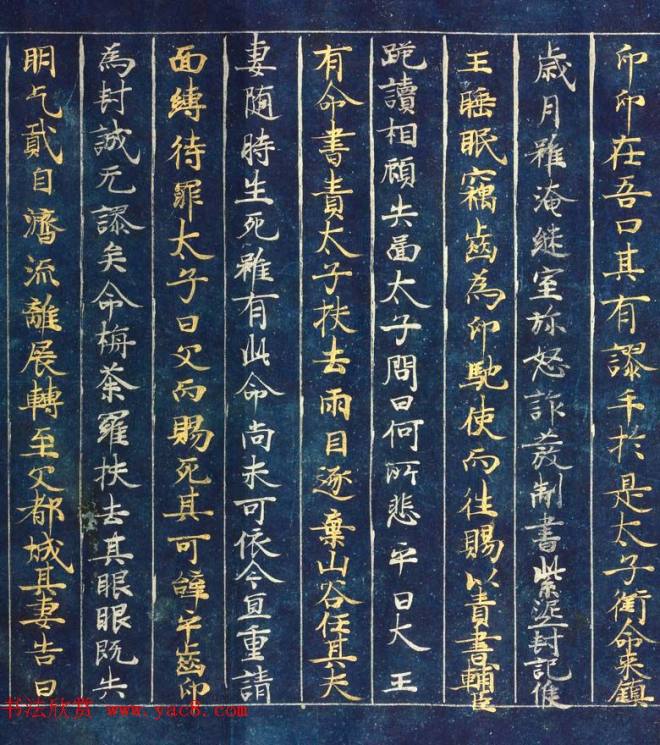 印印在吾口其有謬乎於是太子銜命來鎮
歲月雖淹継室弥怒詐發制書紫泥封記候
王睡眠竊齒為印馳使而往賜以責書輔臣
跪讀相顧失啚太子問曰何所悲乎曰大王
有命書責太子扶去兩目逐棄山谷任其夫
妻隨時生死雖有此命尚未可依今宜重請
面縛待罪太子曰父而賜死其可辝乎齒印
為封誠无謬矣命栴荼羅扶去其眼眼既失
明乞貣自濟流離展轉至父都城其妻告曰
书法欣赏 www.yac8.com